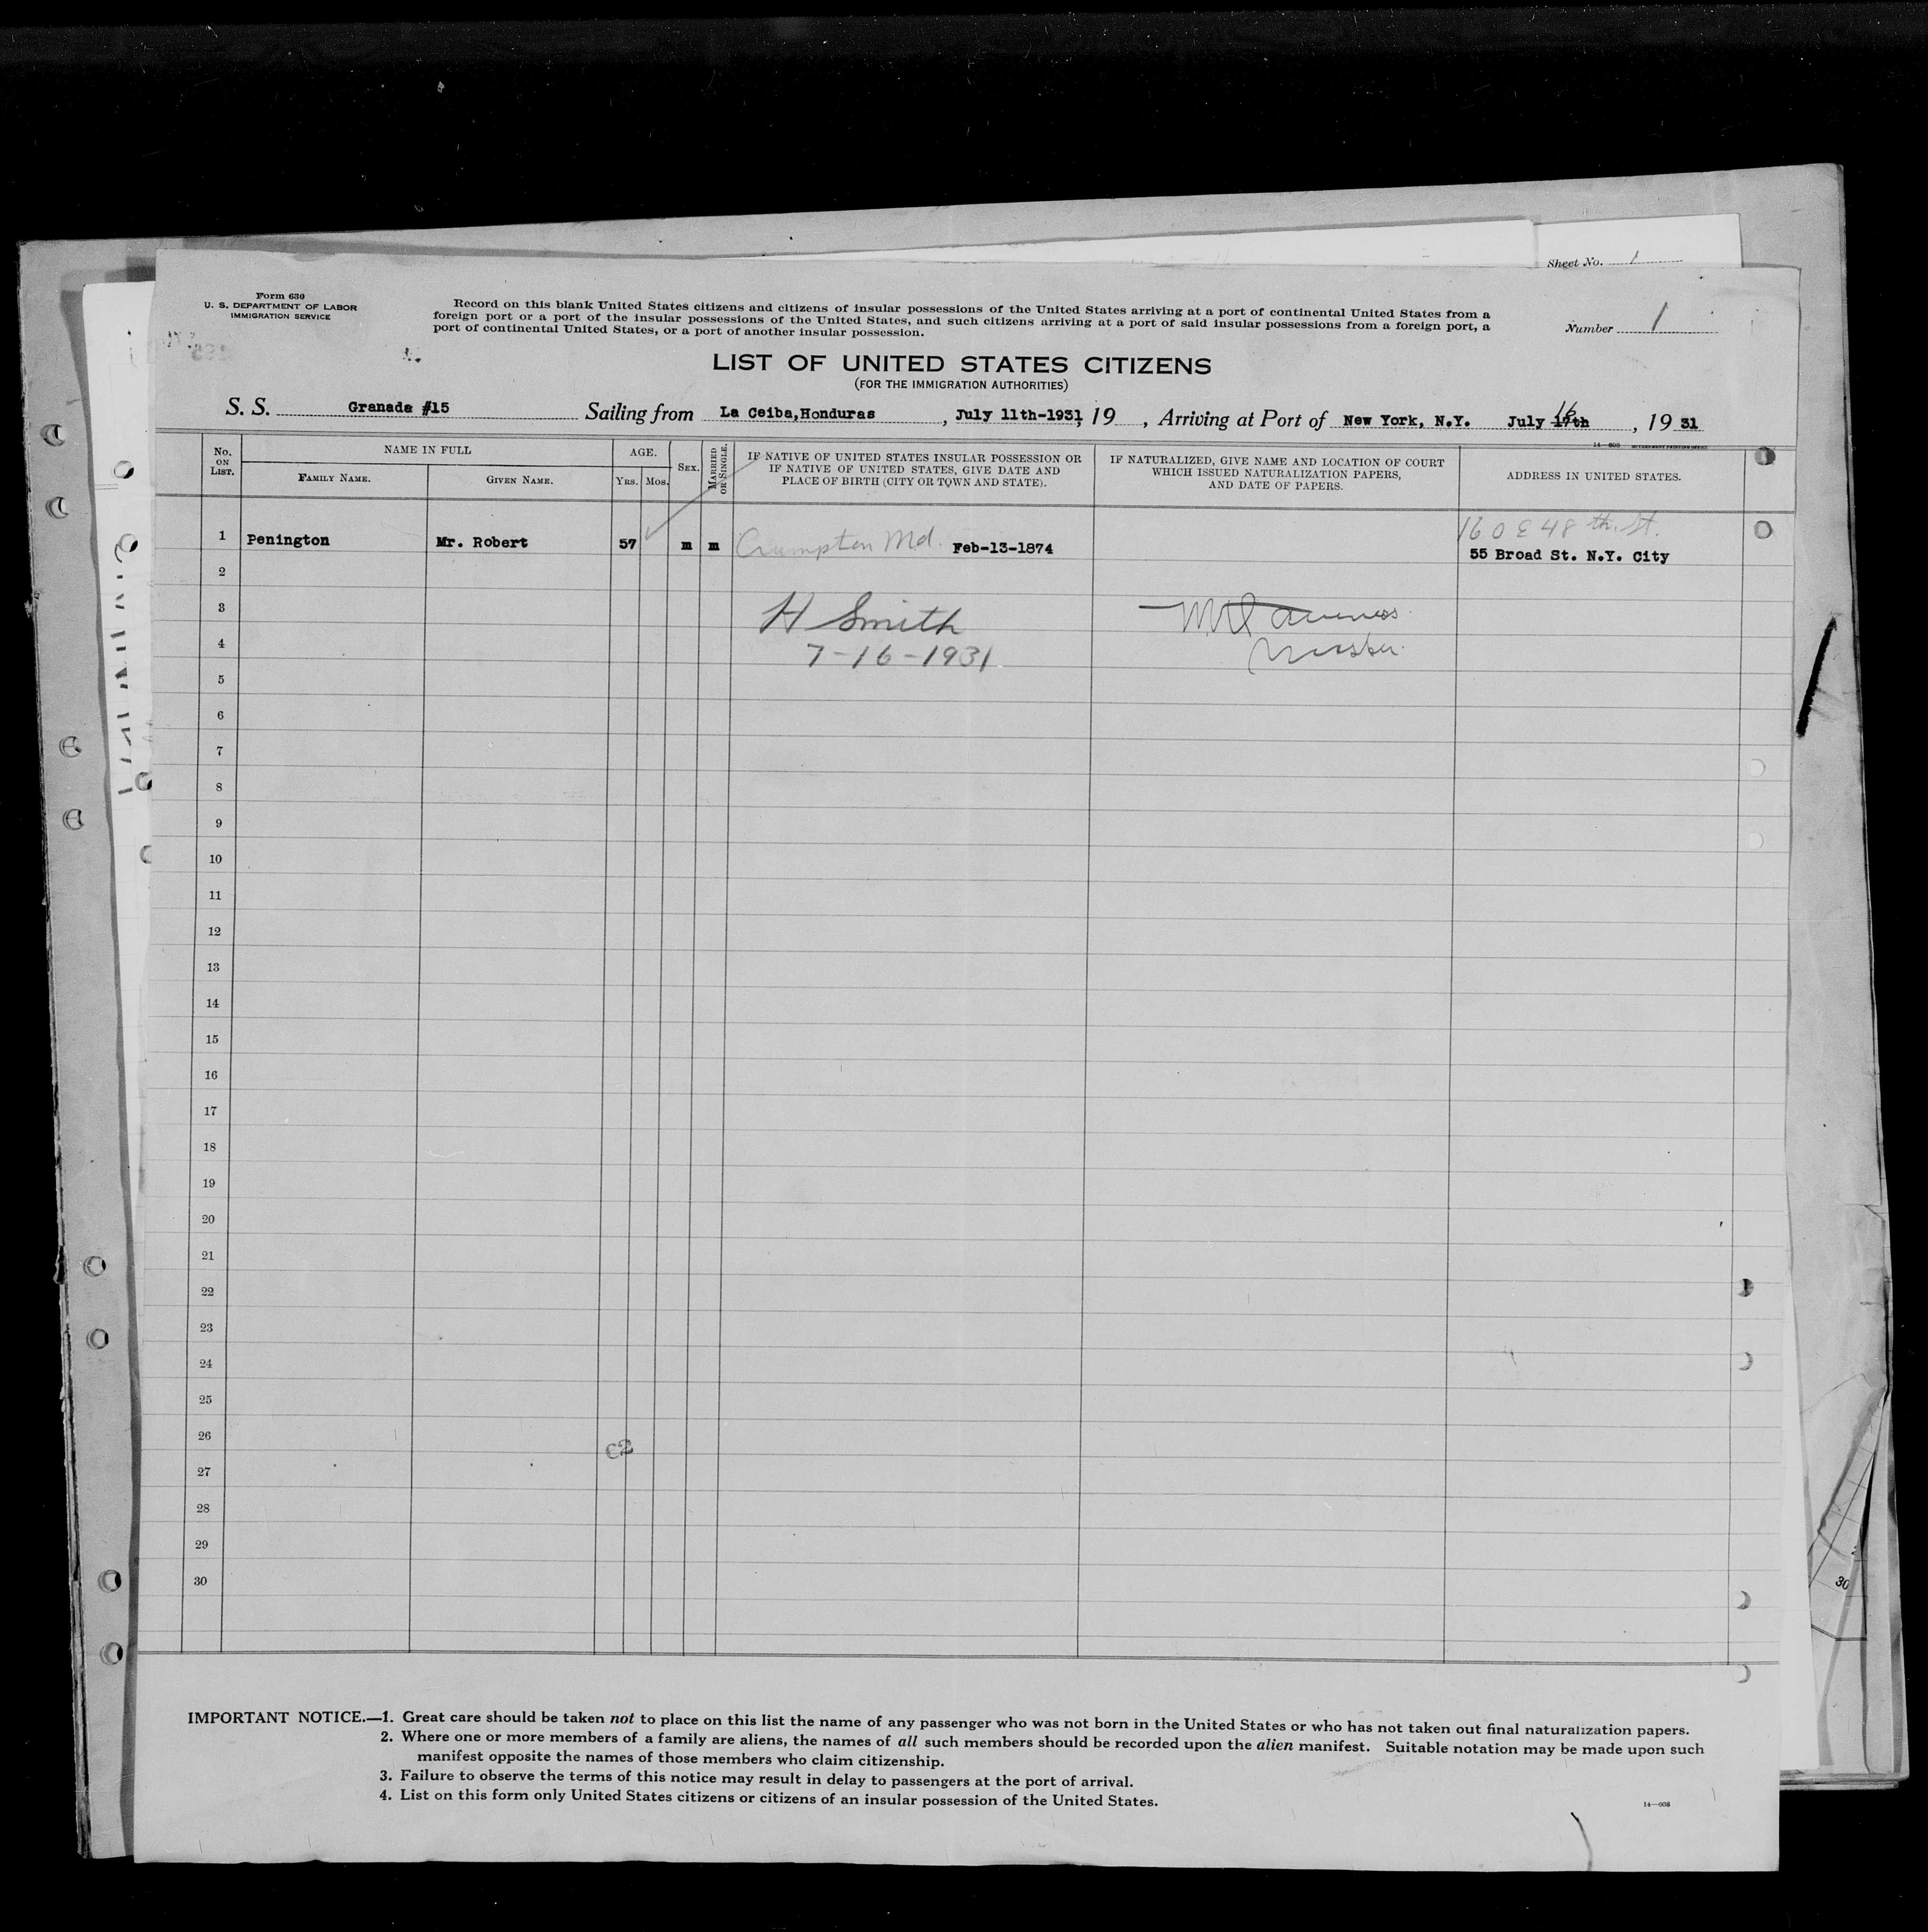 Sheet No. 1
Form 630
U. S. DEPARTMENT OF LABOR
IMMIGRATION SERVICE
Record on this blank United States citizens and citizens of insular possessions of the United States arriving at a port of continental United States from a
foreign port or a port of the insular possessions of the United States, and such citizens arriving at a port of said insular possessions from a foreign port, a
port of continental United States, or a port of another insular possession.
Number 1
LIST OF UNITED STATES CITIZENS
(FOR THE IMMIGRATION AUTHORITIES)
S. S. Granada #15 Sailing from La Ceiba,Honduras, July 11th-1931, 19 , Arriving at Port of New York, N.Y. July 17th 16, 19 31
14—608 GOVERNMENT PRINTING OFFICE
No. ON LIST.
NAME IN FULL
FAMILY NAME.
GIVEN NAME.
AGE.
YRS.
MOS.
SEX.
MARRIED OR SINGLE.
IF NATIVE OF UNITED STATES INSULAR POSSESSION OR
IF NATIVE OF UNITED STATES, GIVE DATE AND
PLACE OF BIRTH (CITY OR TOWN AND STATE).
IF NATURALIZED, GIVE NAME AND LOCATION OF COURT
WHICH ISSUED NATURALIZATION PAPERS,
AND DATE OF PAPERS.
ADDRESS IN UNITED STATES.
160 E 48 th. St.
1 Penington Mr. Robert 57 m m Crumpton Md. Feb-13-1874 55 Broad St. N.Y. City
2
3 H Smith
4 7-16-1931
5
6
7
8
9
10
11
12
13
14
15
16
17
18
19
20
21
22
23
24
25
26
C2
27
28
29
30
30
IMPORTANT NOTICE.—1. Great care should be taken not to place on this list the name of any passenger who was not born in the United States or who has not taken out final naturalization papers.
2. Where one or more members of a family are aliens, the names of all such members should be recorded upon the alien manifest. Suitable notation may be made upon such
manifest opposite the names of those members who claim citizenship.
3. Failure to observe the terms of this notice may result in delay to passengers at the port of arrival.
4. List on this form only United States citizens or citizens of an insular possession of the United States.
14—608